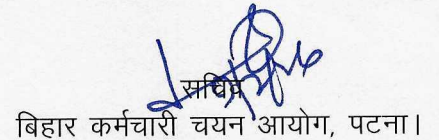 सचिव
बिहार कर्मचारी चयन आयोग, पटना।